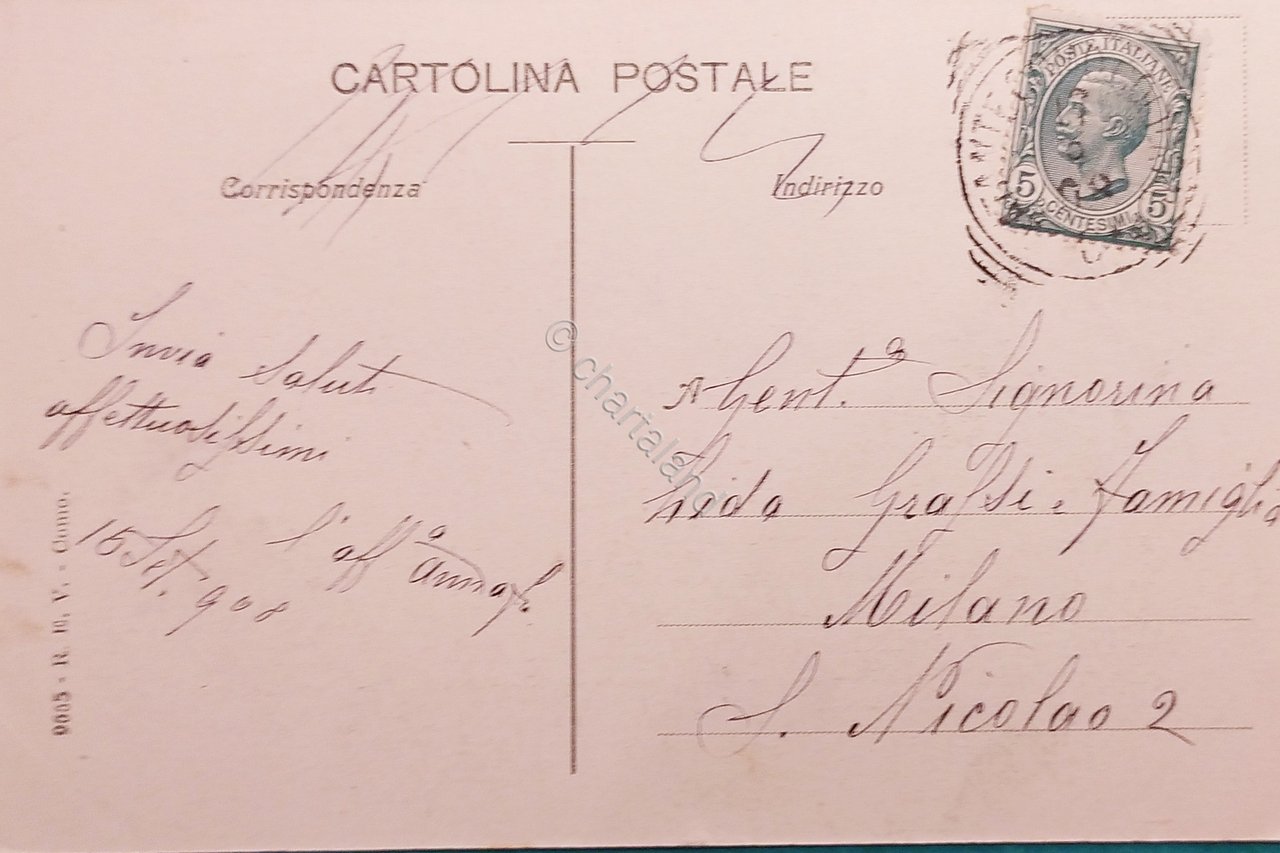 CARTOLINA POSTALE
Corrispondenza
Indirizzo
POSTE ITALIANE
5 CENTESIMI 5
Invia Saluti
affettuosissimi
15 Set. 908
l'aff.a Anna
Gent.a Signorina
Lida Grassi e Famiglia
Milano
S. Nicolao 2
9665 - R. III. V. - Como.
© chartaland